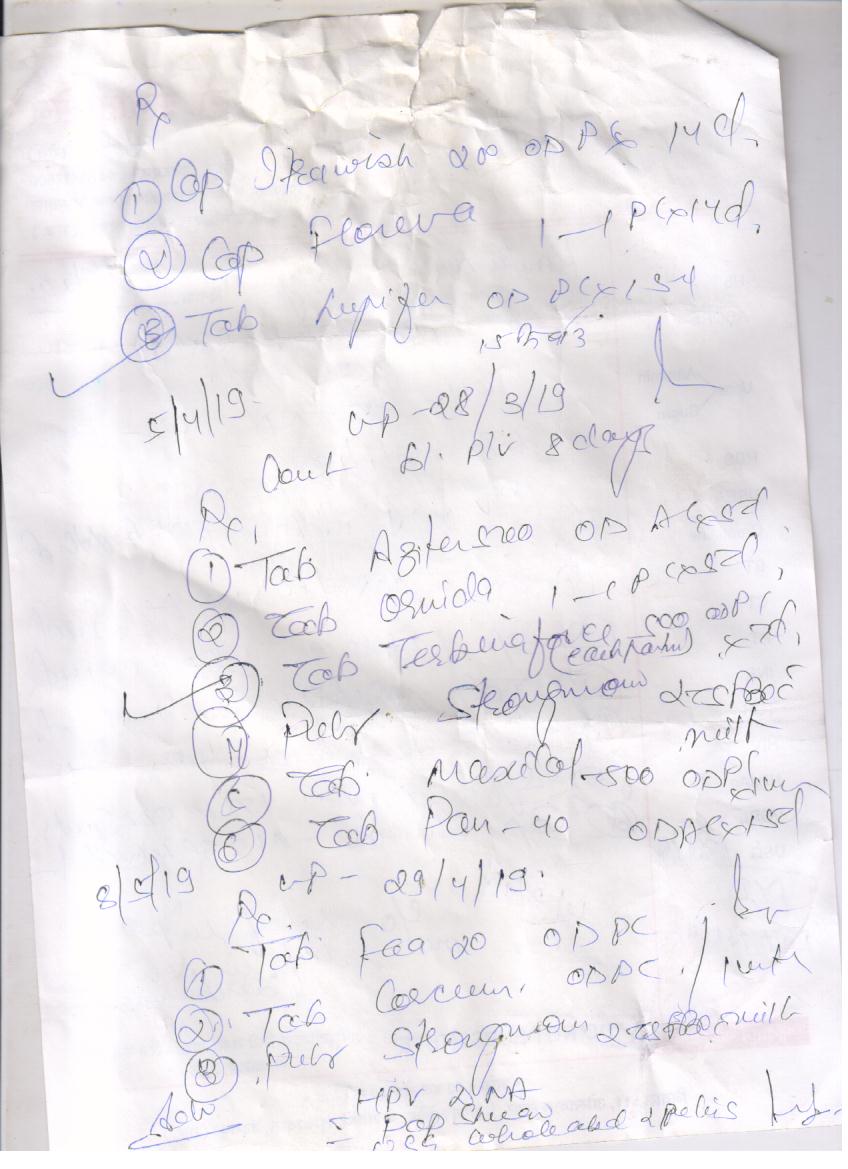 Rx
① Cap Itrawish 200 OD PC x 14 d.
② Cap Floreva 1–1 PC x 14 d.
③ Tab Lupifer OD PC x 15 d
5/4/19 LMP - 28/3/19
bl. P/V 8 days
Rx,
① Tab Azifer 500 OD AC x 5d,
② Tab Ornida 1–1 PC x 5d,
③ Tab Terbinaforce 500 OD PC x 7d,
④ Pulv Strongmom 2 TSF
milk
⑤ Tab. Maxical-500 OD PC
⑥ Tab Pan-40 OD AC x 15d
8/5/19 LMP - 29/4/19.
Rx.
① Tab. Faa 20 OD PC
② Tab OD PC / 1 mth
③ Pulv Strongmom 2 TSF milk
Adv HPV DNA
= Pap Smear
USG whole abd & pelvis